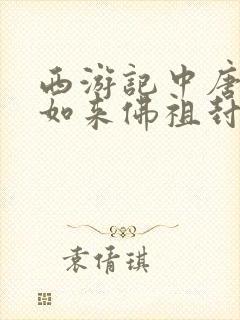 西游记中唐
如来佛祖封
袁倩琪